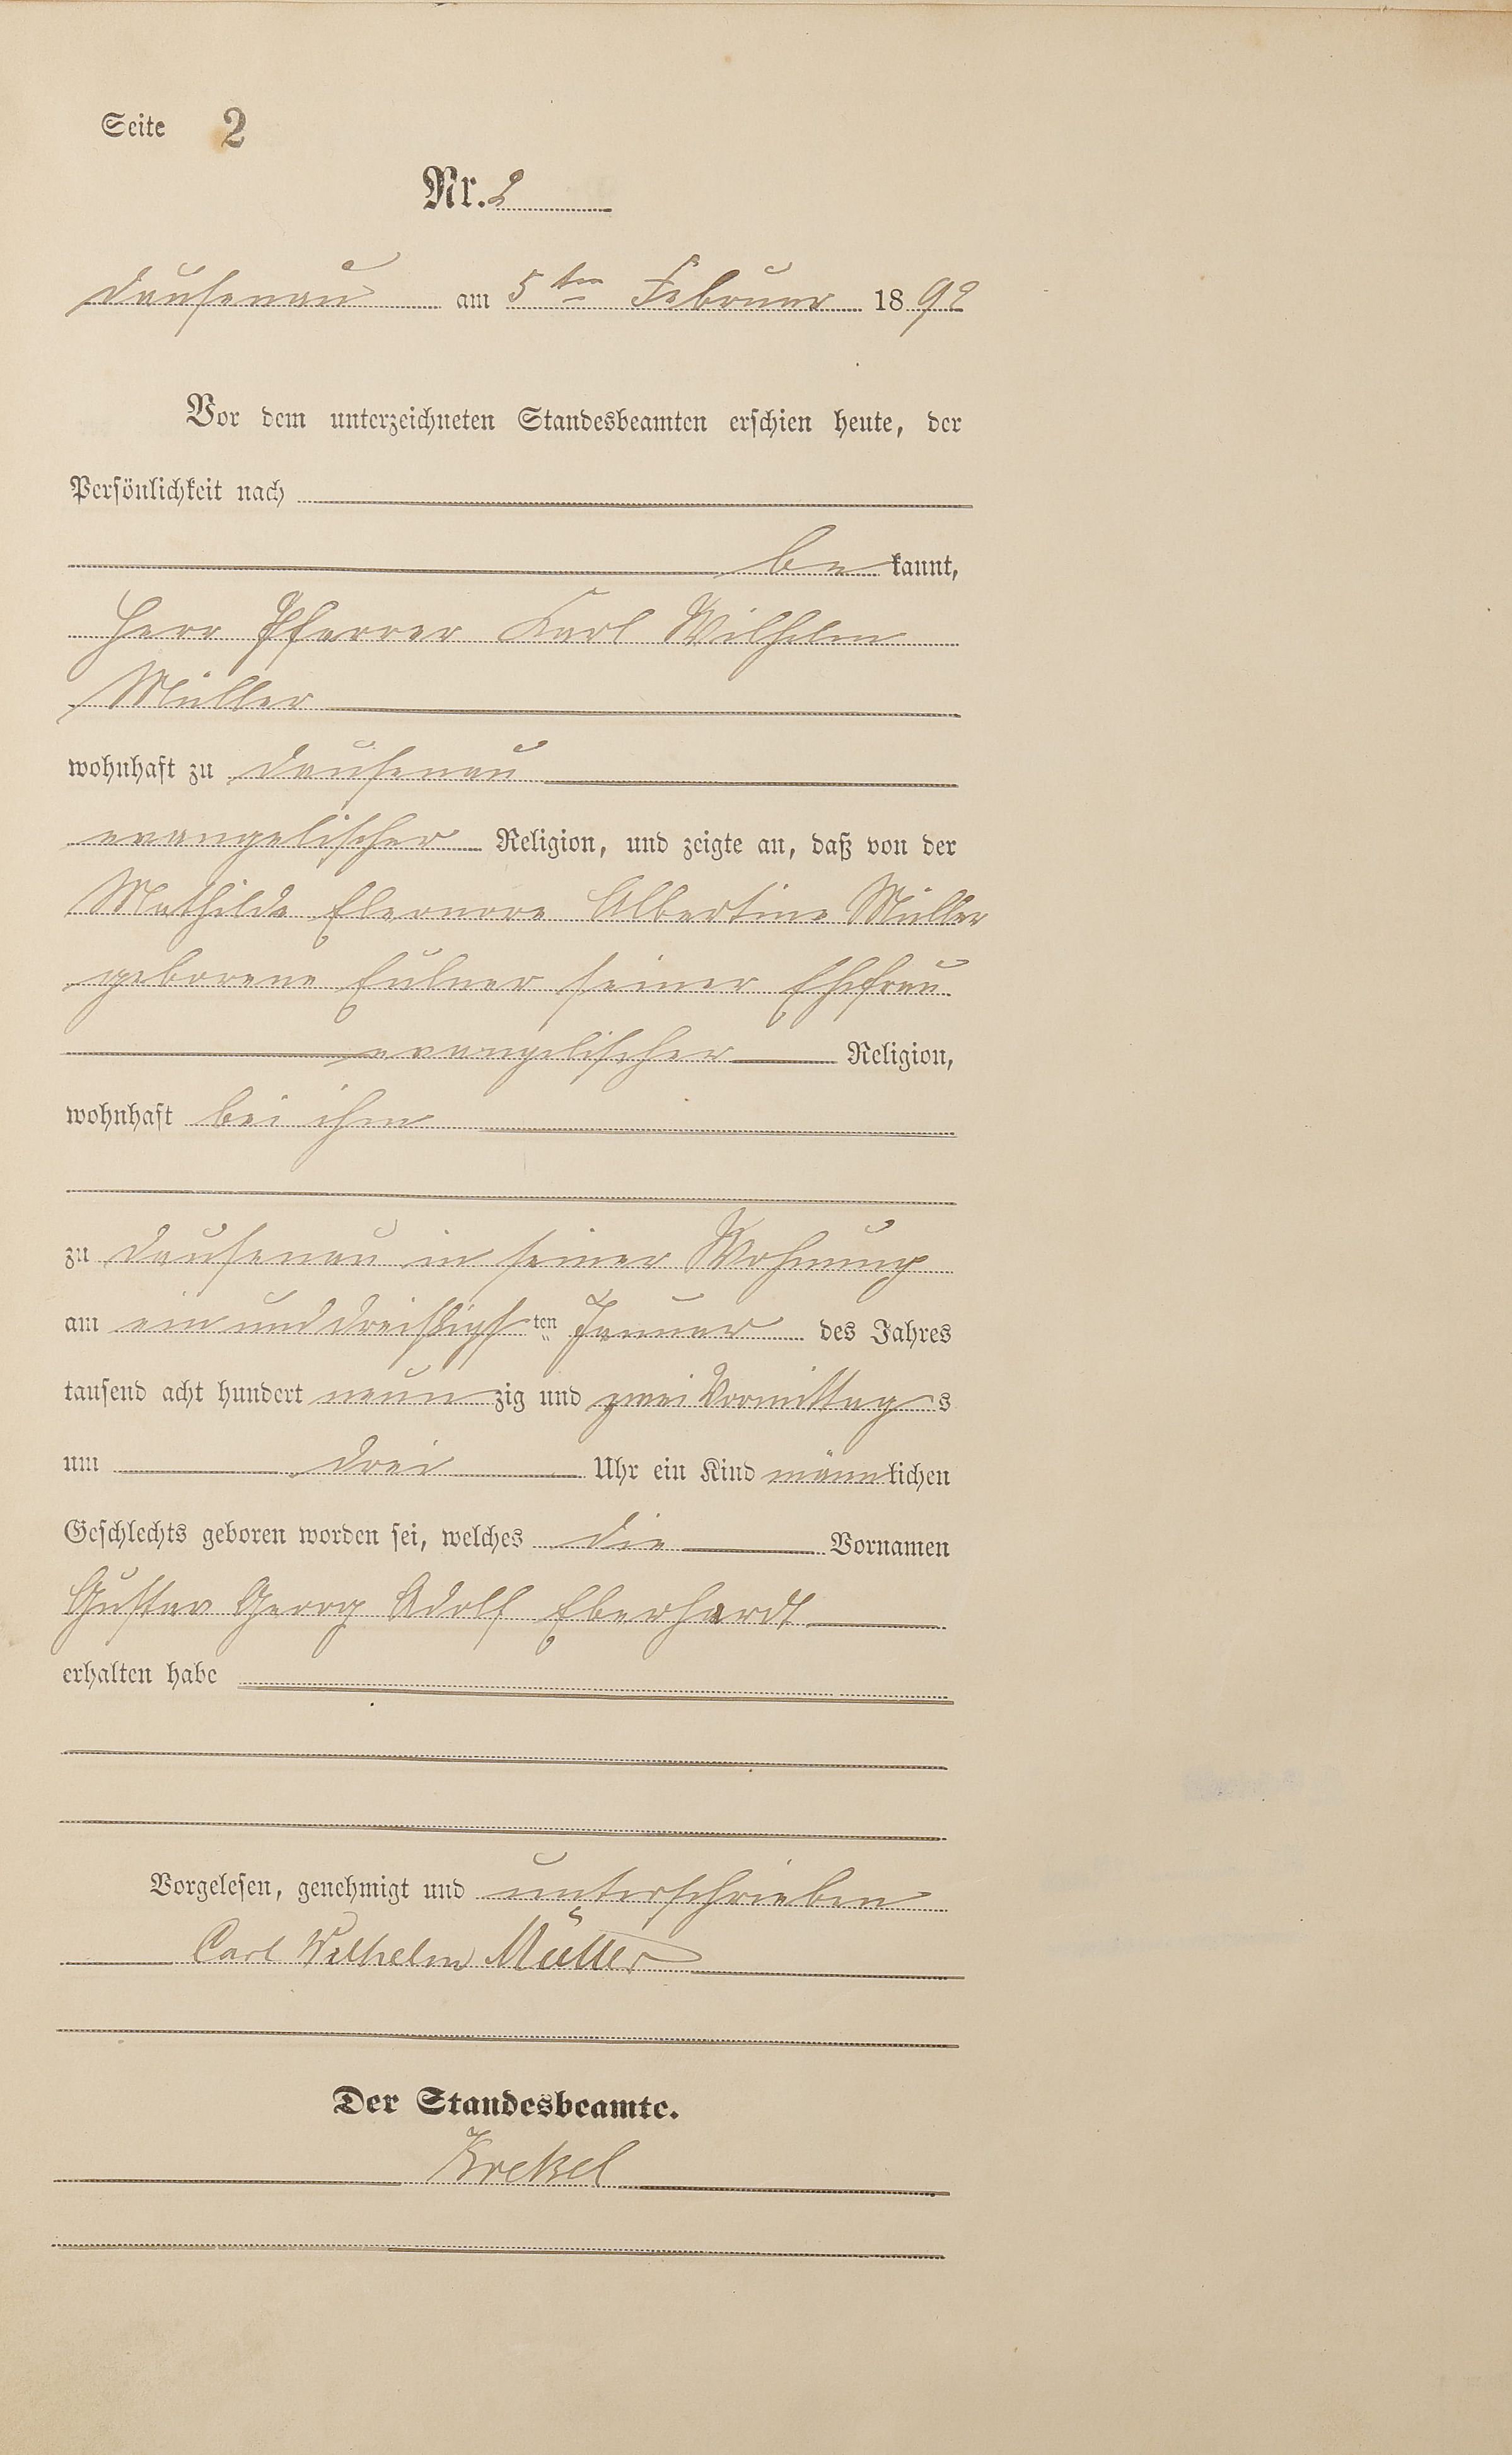 Seite 2
Nr. 2
Dausenau am 5ten Februar 1892
Vor dem unterzeichneten Standesbeamten erschien heute, der
Persönlichkeit nach
bekannt,
Herr Pfarrer Karl Wilhelm
Müller
wohnhaft zu Dausenau
evangelischer Religion, und zeigte an, daß von der
Mathilde Eleonore Albertine Müller
geborene Eulner seiner Ehefrau
evangelischer Religion,
wohnhaft bei ihm
zu Dausenau in seiner Wohnung
am ein und dreißigsten Januar des Jahres
tausend acht hundert neunzig und zwei Vormittags
um drei Uhr ein Kind männlichen
Geschlechts geboren worden sei, welches die Vornamen
Gustav Georg Adolf Eberhardt
erhalten habe
Vorgelesen, genehmigt und unterschrieben
Carl Wilhelm Müller
Der Standesbeamte.
Krekel